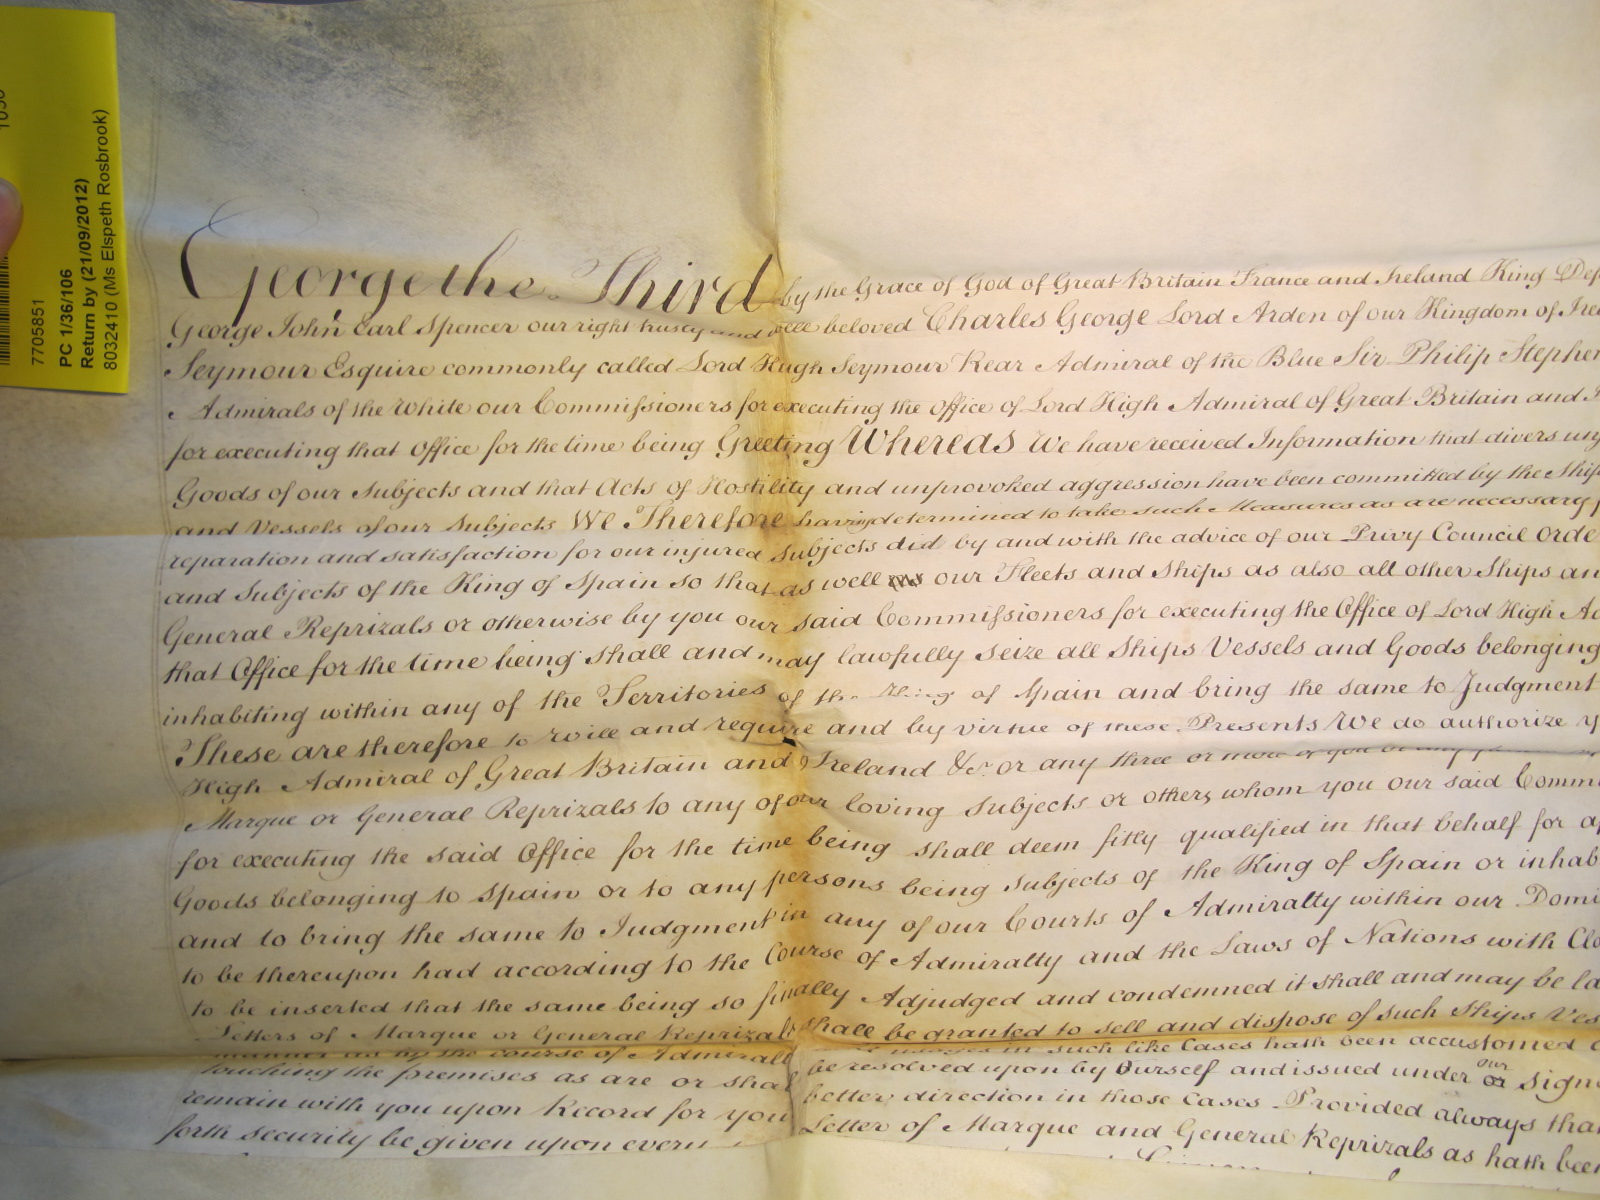 7705851
PC 1/36/106
Return by (21/09/2012)
8032410 (Ms Elspeth Rosbrook)
George the Third by the Grace of God of Great Britain France and Ireland King Def
George John Earl Spencer our right trusty and well beloved Charles George Lord Arden of our Kingdom of Ire
Seymour Esquire commonly called Lord Hugh Seymour Rear Admiral of the Blue Sir Philip Stephen
Admirals of the White our Commissioners for executing the office of Lord High Admiral of Great Britain and I
for executing that Office for the time being Greeting Whereas We have received Information that divers unj
Goods of our Subjects and that Acts of Hostility and unprovoked aggression have been committed by the Ship
and Vessels of our Subjects We Therefore having determined to take such Measures as are necessary f
reparation and satisfaction for our injured Subjects did by and with the advice of our Privy Council Orde
and Subjects of the King of Spain so that as well our Fleets and Ships as also all other Ships an
General Reprizals or otherwise by you our said Commissioners for executing the Office of Lord High Ad
that Office for the time being shall and may lawfully seize all Ships Vessels and Goods belonging
inhabiting within any of the Territories of the King of Spain and bring the same to Judgment
These are therefore to will and require and by virtue of these Presents We do authorize y
High Admiral of Great Britain and Ireland &c. or any three or more of you
Marque or General Reprizals to any of our loving Subjects or others whom you our said Commi
for executing the said Office for the time being shall deem fitly qualified in that behalf for ap
Goods belonging to Spain or to any persons being Subjects of the King of Spain or inhab
and to bring the same to Judgment in any of our Courts of Admiralty within our Domi
to be thereupon had according to the Course of Admiralty and the Laws of Nations with Cla
to be inserted that the same being so finally Adjudged and condemned it shall and may be la
Letters of Marque or General Reprizals shall be granted to sell and dispose of such Ships Ves
manner as by the course of Admiralt usages in such like Cases hath been accustomed
touching the premises as are or shal be resolved upon by Ourself and issued under our sign
remain with you upon Record for you better direction in those Cases Provided always that
forth security be given upon every Letter of Marque and General Reprizals as hath been